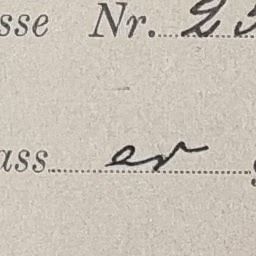 sse Nr. 25
ass er g